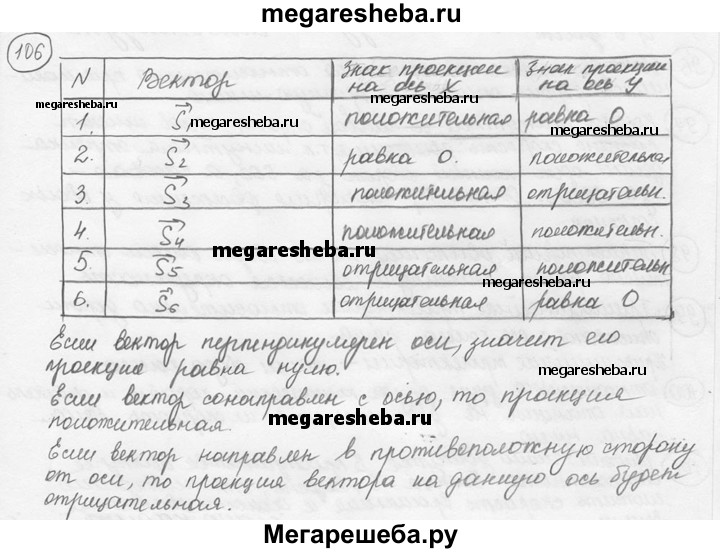 megaresheba.ru
106
N Вектор Знак проекции на ось X Знак проекции на ось Y
megaresheba.ru megaresheba.ru megaresheba.ru
1. S₁ положительная равна 0
2. S₂ равна 0. положительная
3. S₃ положительная отрицательн.
4. S₄ положительная положительн.
megaresheba.ru megaresheba.ru
5. S₅ отрицательная положительн
6. S₆ отрицательная равна 0
Если вектор перпендикулярен оси, значит его
проекция равна нулю.
megaresheba.ru
Если вектор сонаправлен с осью, то проекция
положительная.
megaresheba.ru
Если вектор направлен в противоположную сторону
от оси, то проекция вектора на данную ось будет
отрицательная.
Мегарешеба.ру